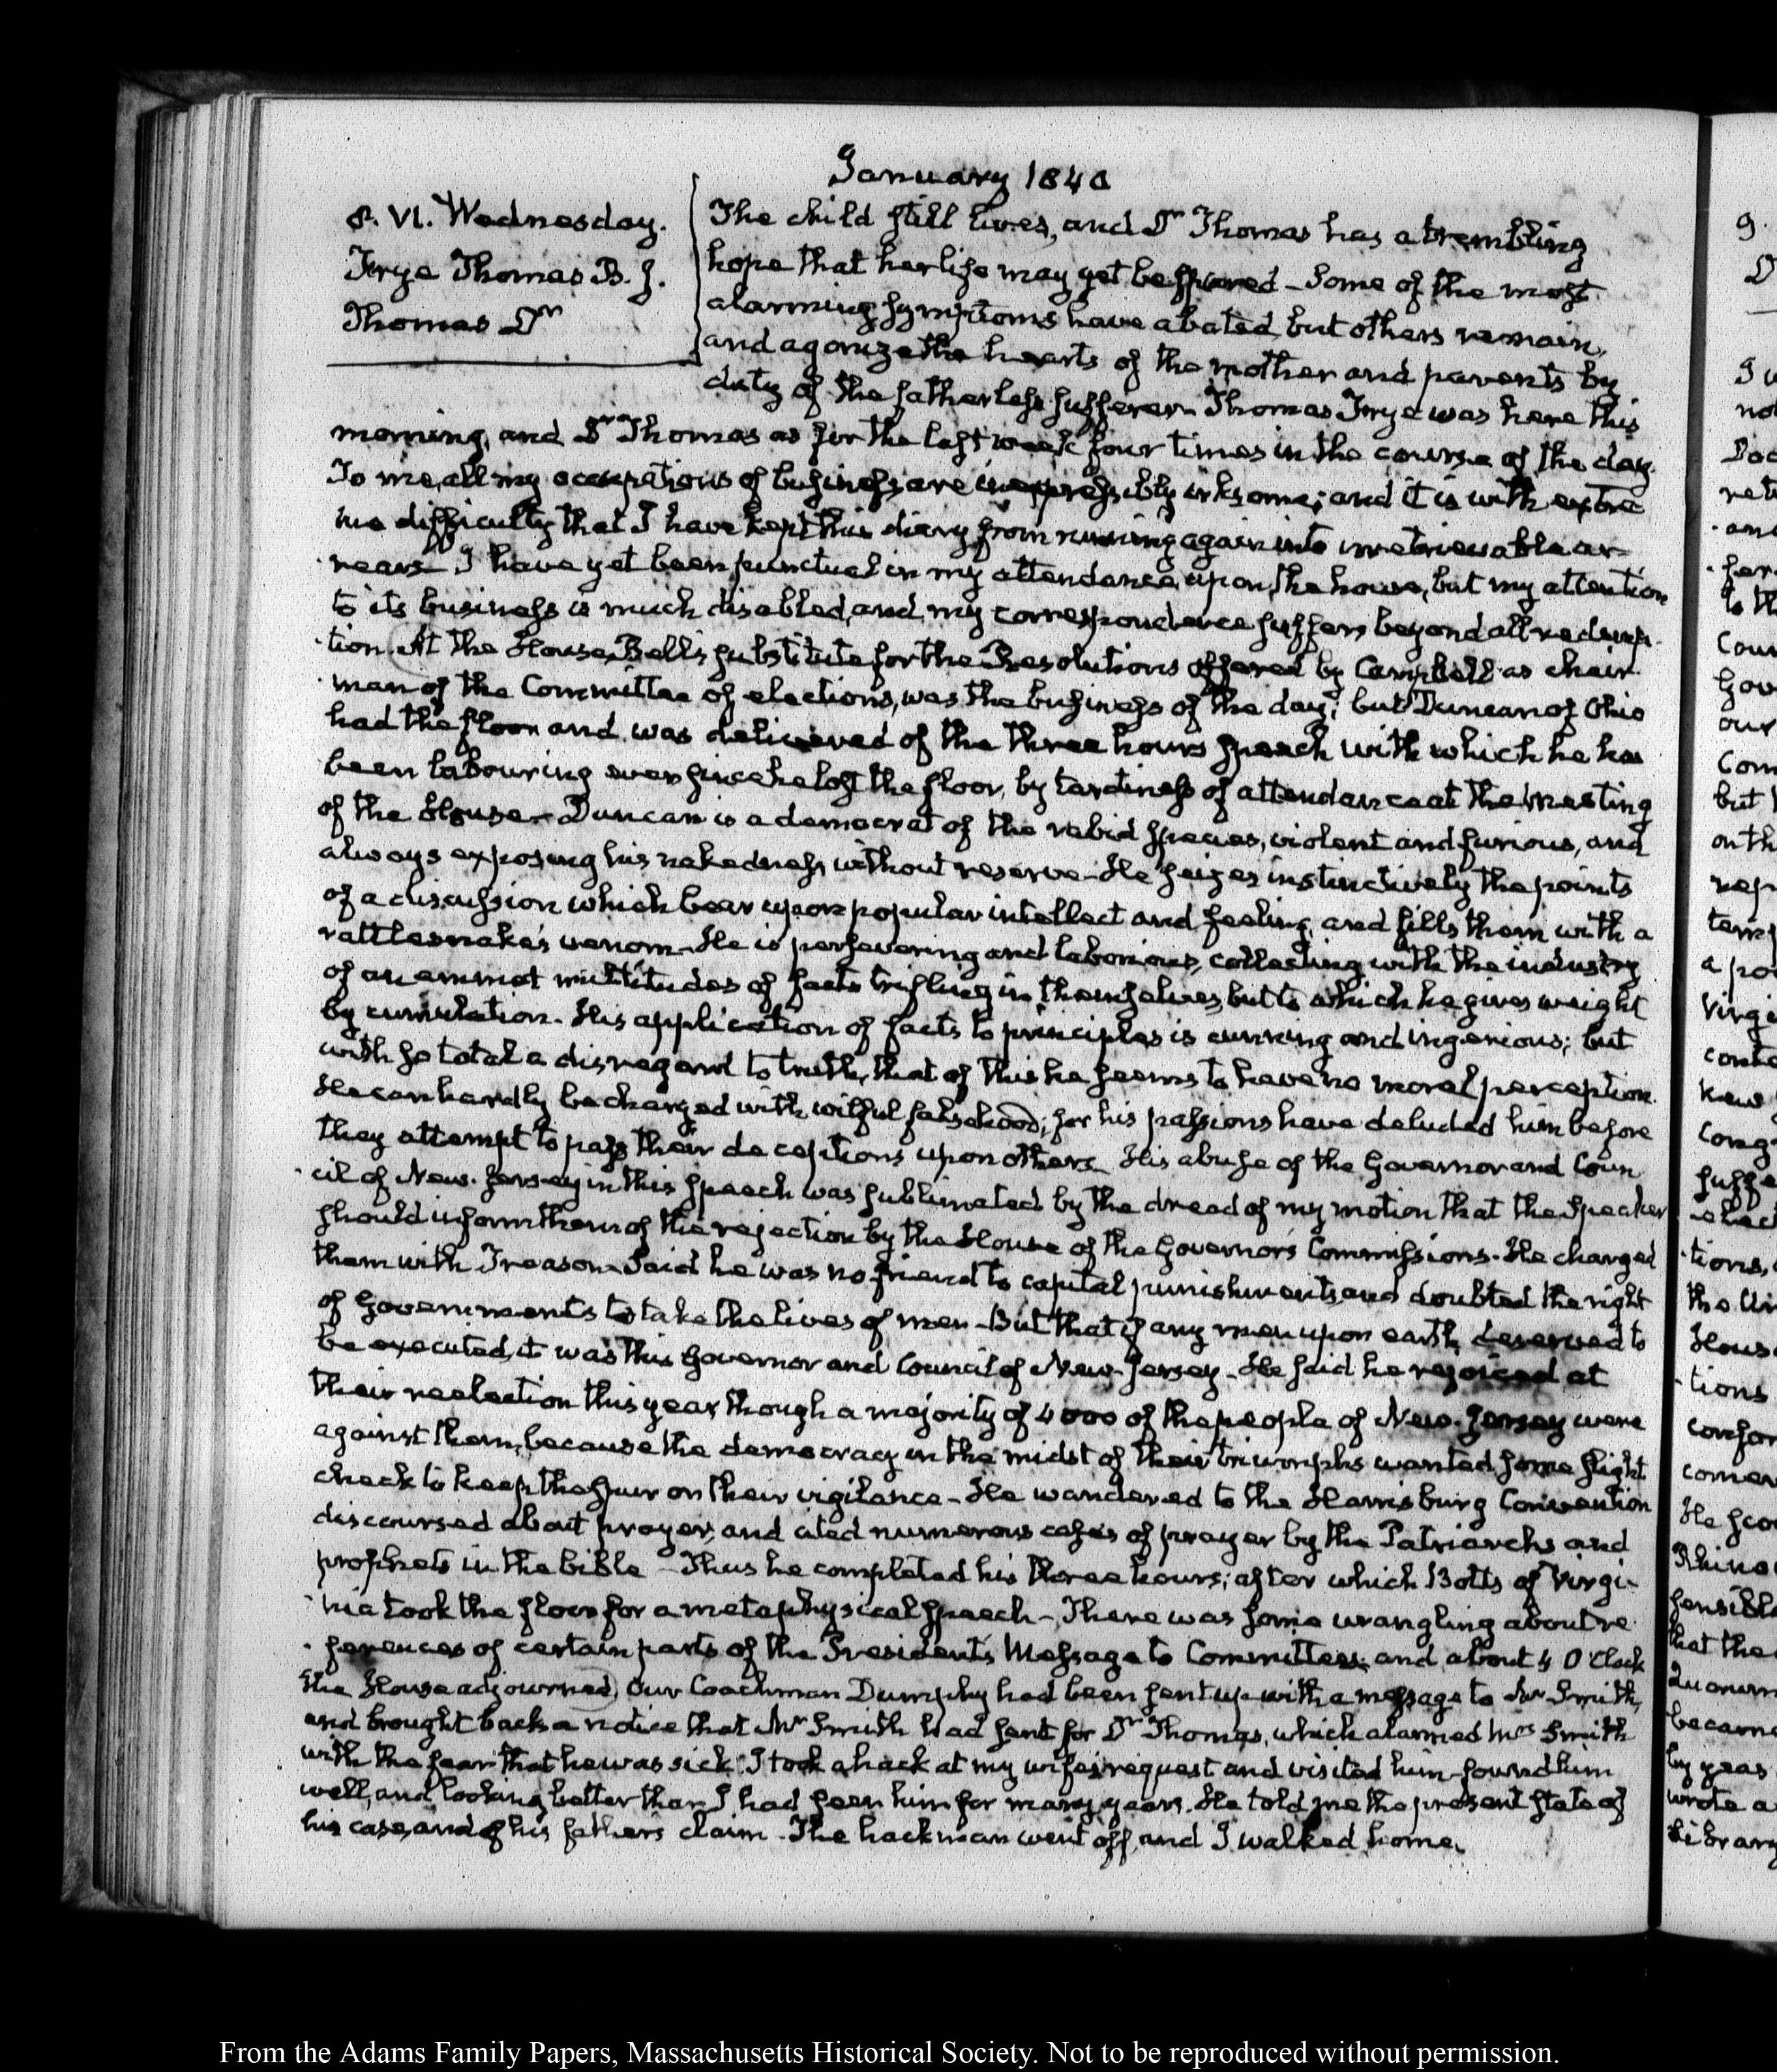 January 1840
8. VI. Wednesday.
Frye Thomas B. J.
Thomas Dr
The child still lives, and Dr Thomas has a trembling
hope that her life may yet be spared - Some of the most
alarming symptoms have abated, but others remain,
and agonize the hearts of the mother and parents by
duty of the fatherless sufferer. Thomas Frye was here this
morning, and Dr Thomas as for the last week four times in the course of the day.
To me, all my occupations of business are inexpressibly irksome; and it is with extre
me difficulty that I have kept this diary from running again into irretrievable ar-
rears - I have yet been punctual in my attendance upon the house, but my attention
to its business is much disabled, and my correspondence suffers beyond all redemp-
tion. At the House, Bell's substitute for the Resolutions offered by Campbell as chair-
man of the Committee of elections, was the business of the day; but Duncan of Ohio
had the floor and was delivered of the three hours speech with which he has
been labouring ever since he lost the floor, by tardiness of attendance at the meeting
of the House - Duncan is a democrat of the rabid species, violent and furious, and
always exposing his nakedness without reserve - He seizes instinctively the points
of a discussion which bear upon popular intellect and feeling, and fills them with a
rattlesnake's venom - He is persevering and laborious, collecting with the industry
of an emmet multitudes of facts trifling in themselves, but to which he gives weight
by cumulation. His application of facts to principles is cunning and ingenious; but
with so total a disregard to truth, that of this he seems to have no moral perception.
He can hardly be charged with wilful falsehood; for his passions have deluded him before
they attempt to pass their deceptions upon others - His abuse of the Governor and Coun
cil of New-Jersey in this speech was sublimated by the dread of my motion that the Speaker
should inform them of the rejection by the House of the Governor's Commissions. He charged
them with Treason - Said he was no friend to capital punishments, and doubted the right
of Governments to take the lives of men - But that if any men upon earth deserved to
be executed, it was this Governor and Council of New-Jersey - He said he rejoiced at
their reelection this year though a majority of 4000 of the people of New-Jersey were
against them, because the democracy in the midst of their triumphs wanted some slight
check to keep the spur on their vigilance - He wandered to the Harrisburg Convention
discoursed about prayer, and cited numerous cases of prayer by the Patriarchs and
prophets in the bible - Thus he completed his three hours; after which Botts of Virgi-
nia took the floor for a metaphysical speech - There was some wrangling about re-
ferences of certain parts of the President's Message to Committees; and about 4 O'Clock
the House adjourned. Our Coachman Dumphy had been sent up with a message to Mr Smith,
and brought back a notice that Mr Smith had sent for Dr Thomas, which alarmed Mrs Smith
with the fear that he was sick. I took a hack at my wife's request and visited him - found him
well, and looking better than I had seen him for many years. He told me the present state of
his case, and of his father's claim - The hackman went off, and I walked home.
From the Adams Family Papers, Massachusetts Historical Society. Not to be reproduced without permission.